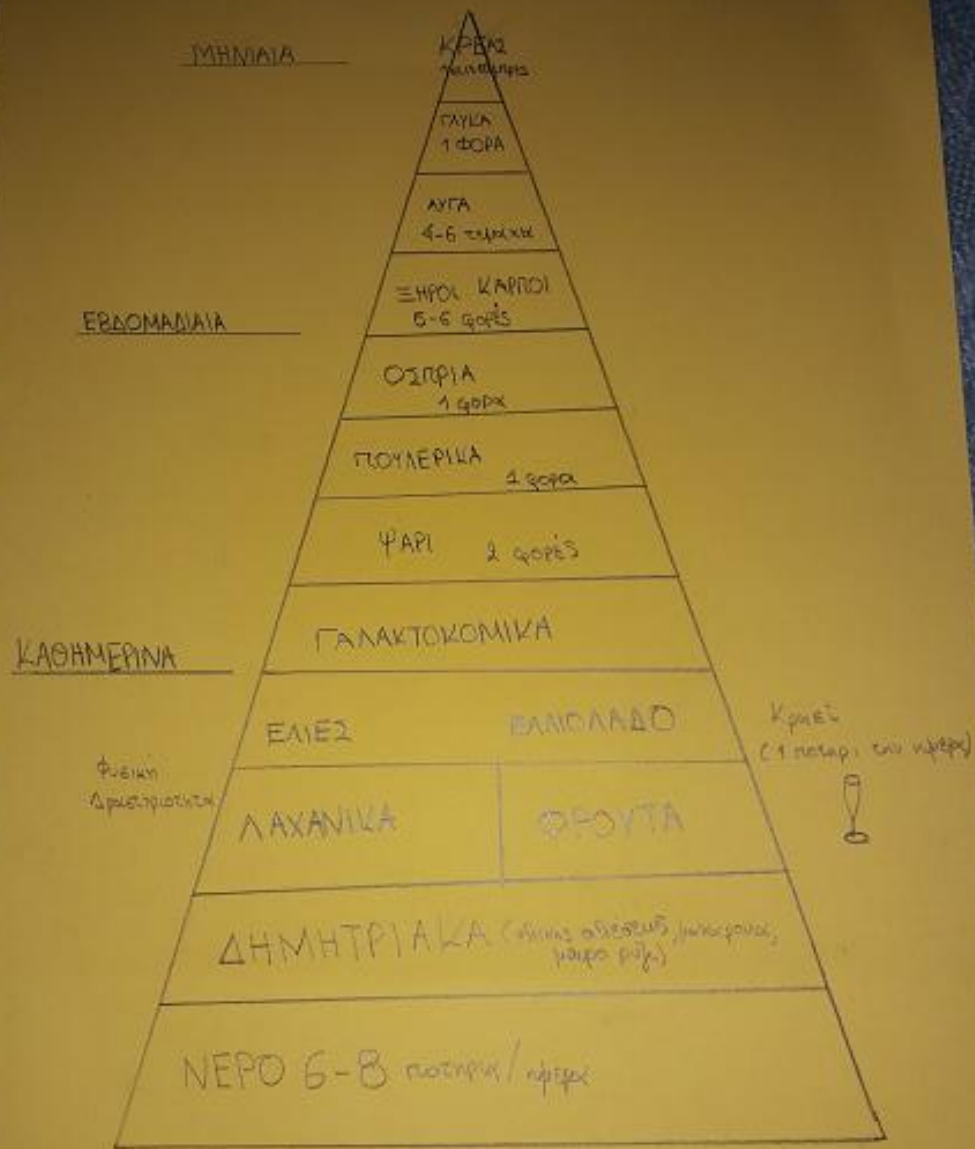 ΜΗΝΙΑΙΑ
ΚΡΕΑΣ
ΓΛΥΚΑ
1 ΦΟΡΑ
ΑΥΓΑ
4-6 τεμαχια
ΞΗΡΟΙ ΚΑΡΠΟΙ
5-6 φορές
ΕΒΔΟΜΑΔΙΑΙΑ
ΟΣΠΡΙΑ
1 φορα
ΠΟΥΛΕΡΙΚΑ 1 φορα
ΨΑΡΙ 2 φορές
ΓΑΛΑΚΤΟΚΟΜΙΚΑ
ΚΑΘΗΜΕΡΙΝΑ
ΕΛΙΕΣ ΕΛΑΙΟΛΑΔΟ
Κρασί
(1 ποτηρι την ημερα)
Φυσικη
Δραστηριοτητα
ΛΑΧΑΝΙΚΑ ΦΡΟΥΤΑ
ΔΗΜΗΤΡΙΑΚΑ (ολικης αλεσεως, μακαρονια,
μαυρο ρυζι)
ΝΕΡΟ 6-8 ποτηρια/ημερα